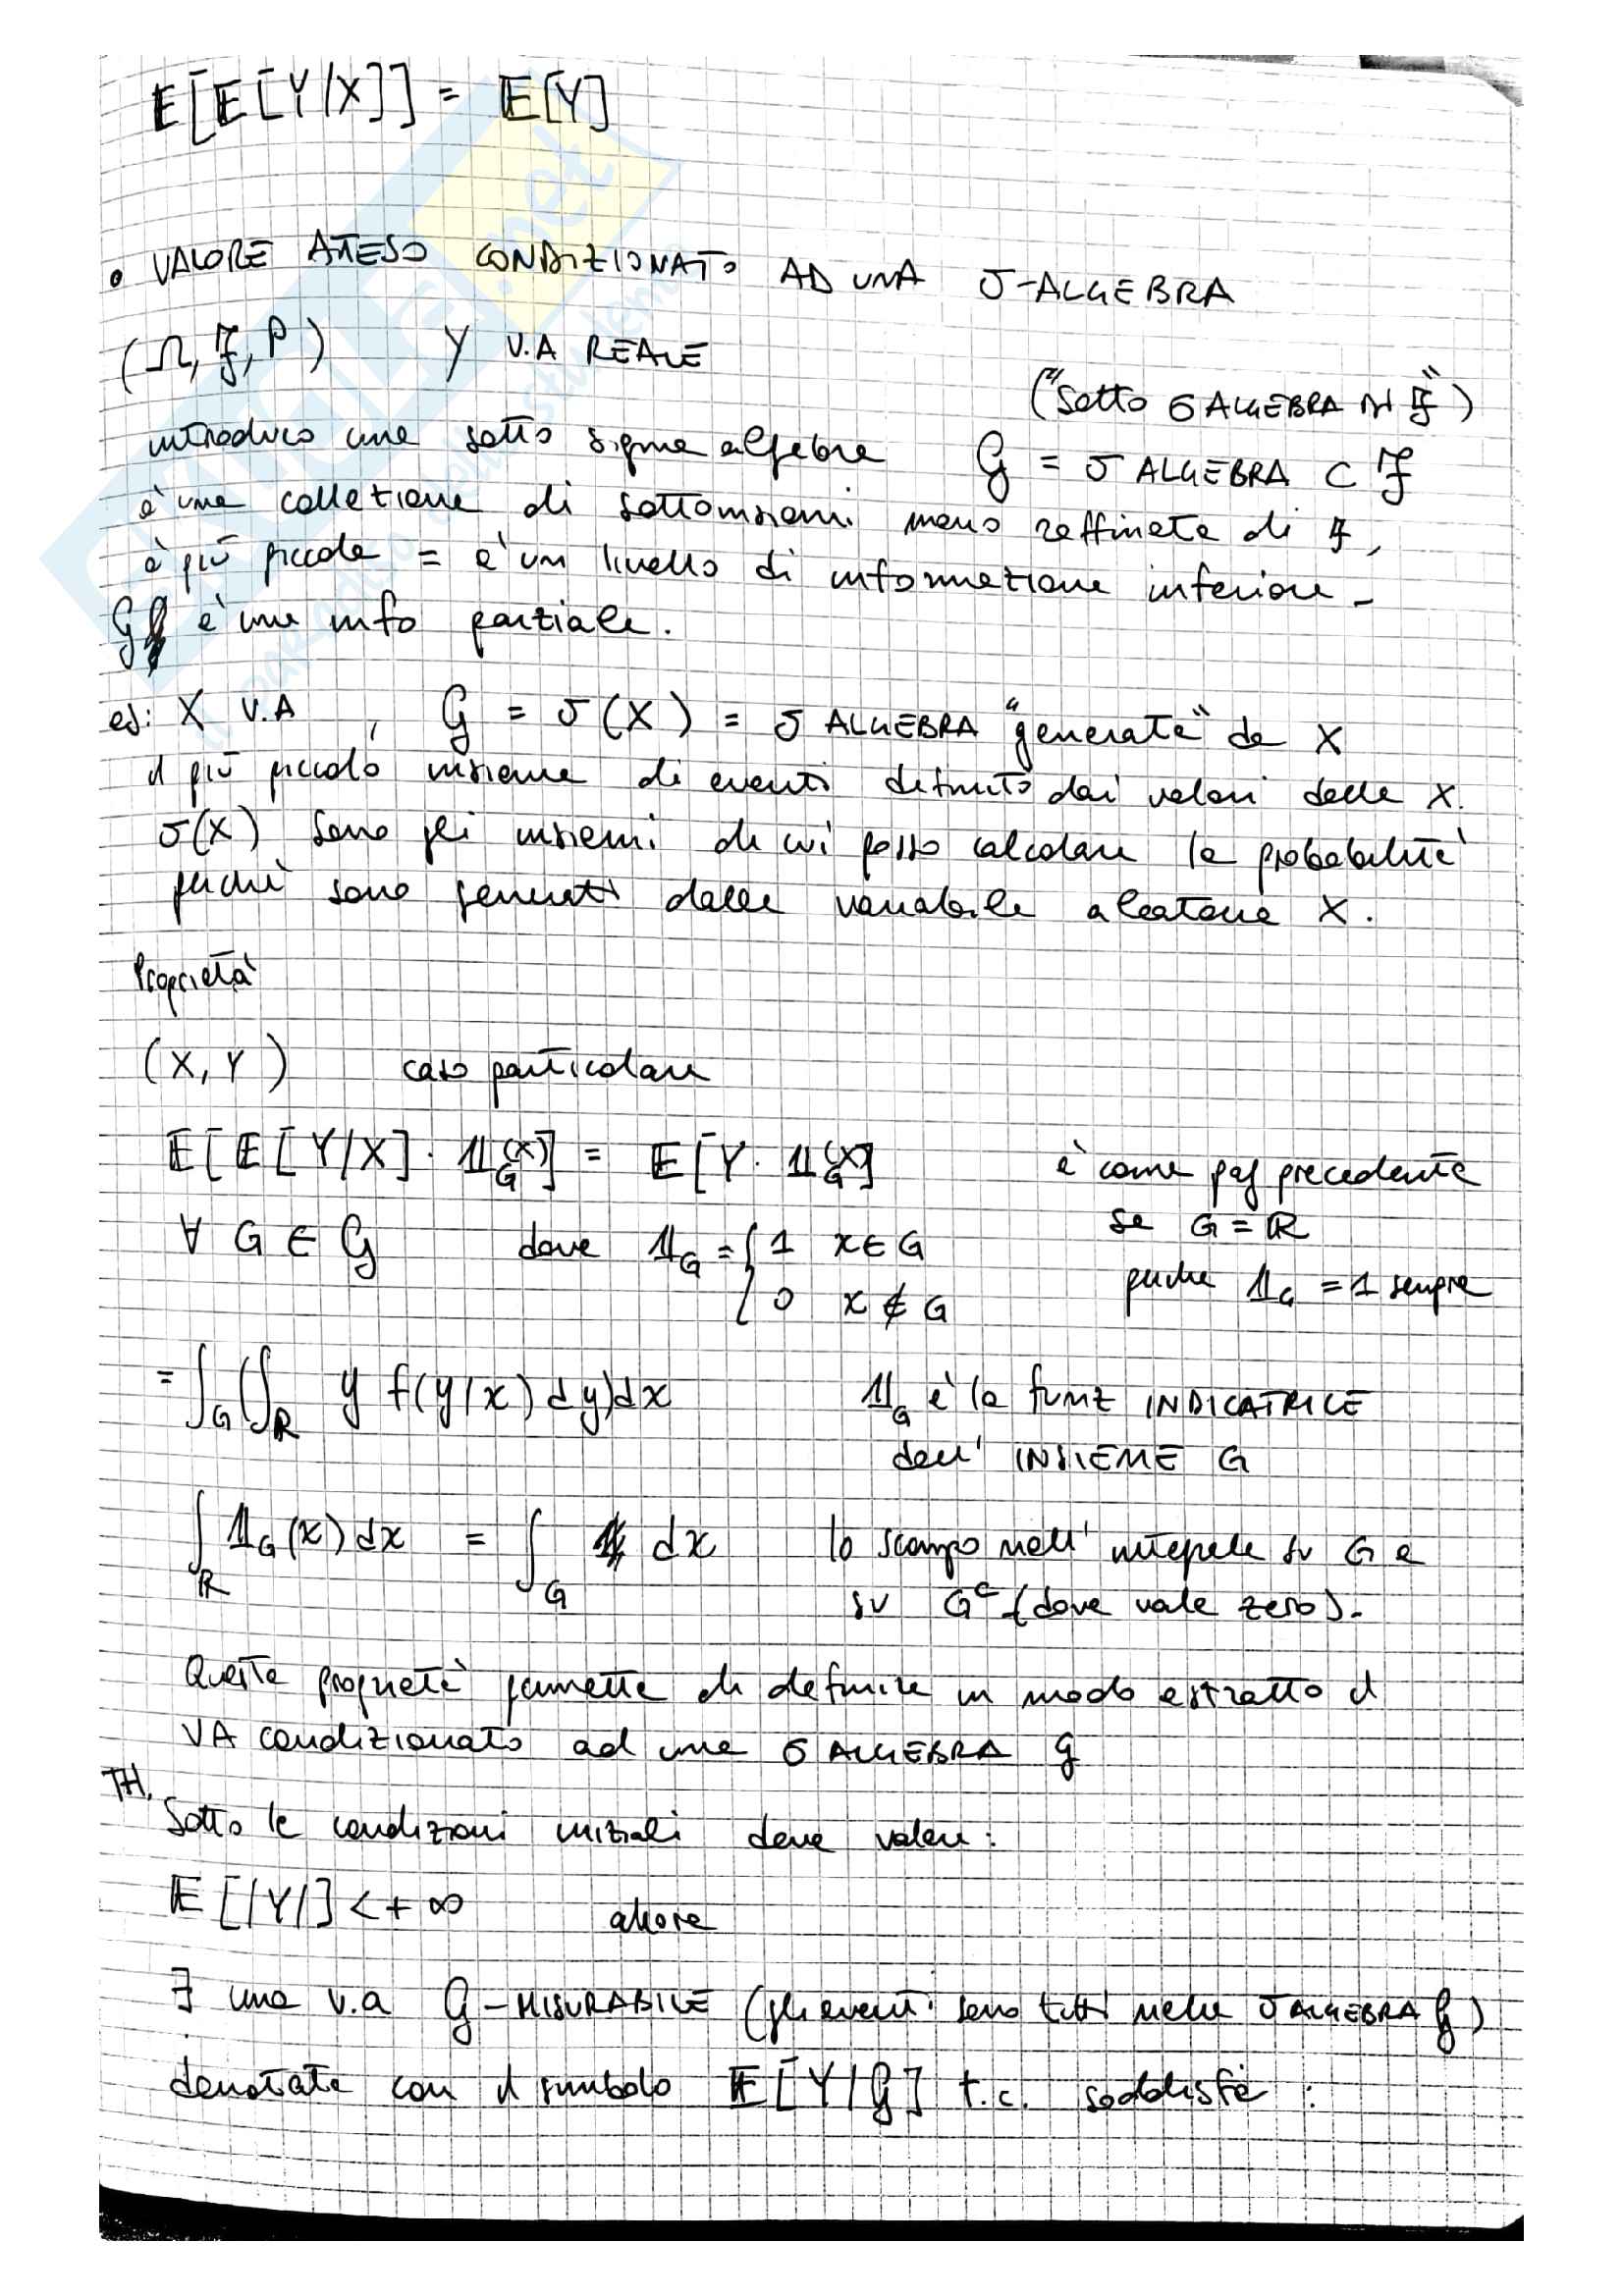 E[E[Y/X]] = E[Y]
• VALORE ATTESO CONDIZIONATO AD UNA σ-ALGEBRA
(Ω, F, P) Y V.A REALE
("Sotto σ ALGEBRA DI F")
introduco una sotto sigma algebra G = σ ALGEBRA ⊂ F
è una collezione di sottoinsiemi meno raffinata di F,
è più piccola = è un livello di informazione inferiore -
G è una info parziale.
es: X V.A , G = σ(X) = σ ALGEBRA "generata" da X
il più piccolo insieme di eventi definito dai valori della X.
σ(X) sono gli insiemi di cui posso calcolare la probabilità
perché sono generati dalla variabile aleatoria X.
Proprietà
(X, Y) caso particolare
E[E[Y/X] · 𝟙_G(X)] = E[Y · 𝟙_G(X)] è come pag precedente
se G = ℝ
∀ G ∈ G dove 𝟙_G = { 1 x ∈ G
perché 𝟙_G = 1 sempre
0 x ∉ G
= ∫_G (∫_ℝ y f(y/x) dy) dx 𝟙_G è la funz INDICATRICE
dell' INSIEME G
∫_ℝ 𝟙_G(x) dx = ∫_G dx lo scompo nell' integrale su G e
su G^c (dove vale zero).
Questa proprietà permette di definire in modo astratto il
VA condizionato ad una σ ALGEBRA G
TH.
Sotto le condizioni iniziali deve valere:
E[|Y|] < +∞ allora
∃ una v.a G-MISURABILE (gli eventi sono tutti nella σ ALGEBRA G)
denotata con il simbolo E[Y/G] t.c. soddisfa :
SKUOLA.net
il paradiso dello studente